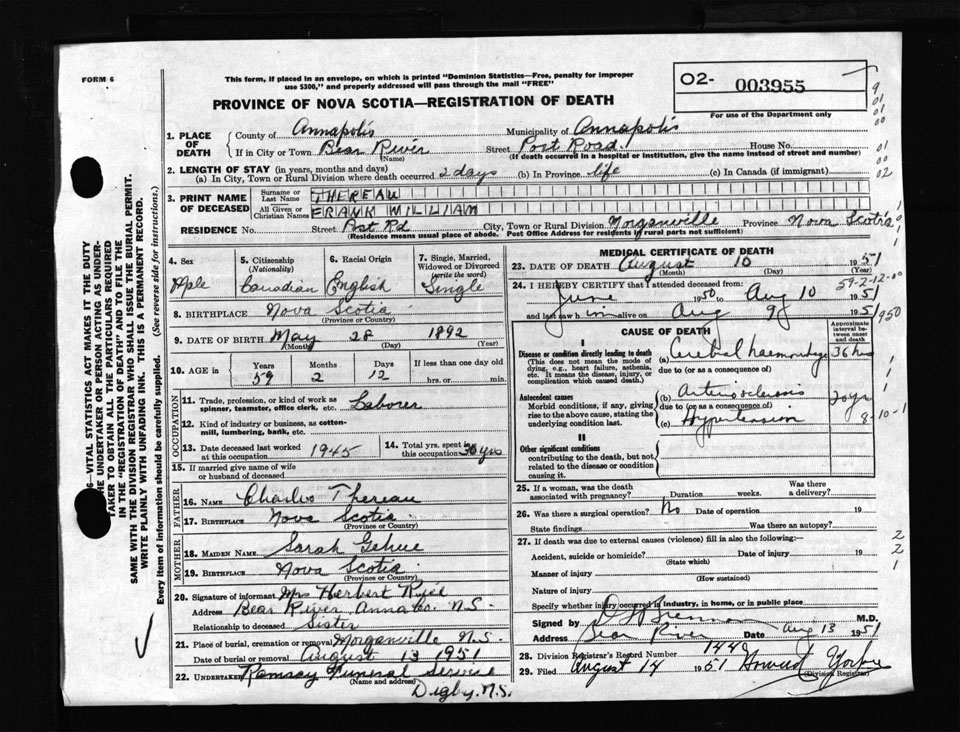 FORM 6
This form, if placed in an envelope, on which is printed "Dominion Statistics—Free, penalty for improper
use $300," and properly addressed will pass through the mail "FREE"
PROVINCE OF NOVA SCOTIA—REGISTRATION OF DEATH
O2- 003955
For use of the Department only
1. PLACE OF DEATH County of Annapolis Municipality of Annapolis
If in City or Town Bear River (Name) Street Post Road House No.
(If death occurred in a hospital or institution, give the name instead of street and number)
2. LENGTH OF STAY (in years, months and days)
(a) In City, Town or Rural Division where death occurred 2 days (b) In Province life (c) In Canada (if immigrant)
3. PRINT NAME OF DECEASED Surname or Last Name THEREAU
All Given or Christian Names FRANK WILLIAM
RESIDENCE No. Street Post Rd City, Town or Rural Division Morganville Province Nova Scotia
(Residence means usual place of abode. Post Office Address for residents of rural parts not sufficient)
4. Sex Male
5. Citizenship (Nationality) Canadian
6. Racial Origin English
7. Single, Married, Widowed or Divorced (write the word) Single
8. BIRTHPLACE Nova Scotia
(Province or Country)
9. DATE OF BIRTH May 28 1892
(Month) (Day) (Year)
10. AGE in Years 59 Months 2 Days 12 If less than one day old hrs. or min.
OCCUPATION
11. Trade, profession, or kind of work as spinner, teamster, office clerk, etc. Laborer
12. Kind of industry or business, as cotton-mill, lumbering, bank, etc.
13. Date deceased last worked at this occupation 1945
14. Total yrs. spent in this occupation 30 yrs
15. If married give name of wife or husband of deceased
FATHER
16. NAME Charles Thereau
17. BIRTHPLACE Nova Scotia
(Province or Country)
MOTHER
18. MAIDEN NAME Sarah Gehue
19. BIRTHPLACE Nova Scotia
(Province or Country)
20. Signature of informant Mrs Herbert
Address Bear River Anna Co. N.S.
Relationship to deceased Sister
21. Place of burial, cremation or removal Morganville N.S.
Date of burial or removal August 13 1951
22. UNDERTAKER Ramsay Funeral Service
(Name and address)
Digby, N.S.
MEDICAL CERTIFICATE OF DEATH
23. DATE OF DEATH August 10 1951
(Month) (Day) (Year)
59-2-12
24. I HEREBY CERTIFY that I attended deceased from
June 1950 to Aug 10 1951
and last saw him alive on Aug 9 1951
950
CAUSE OF DEATH
Approximate interval between onset and death
I
Disease or condition directly leading to death (a) Cerebral haemorrhage 36 hrs
(This does not mean the mode of dying, e.g., heart failure, asthenia, etc. It means the disease, injury, or complication which caused death.)
due to (or as a consequence of)
Antecedent causes (b) Arteriosclerosis 20 yr
Morbid conditions, if any, giving rise to the above cause, stating the underlying condition last.
due to (or as a consequence of)
(c) Hypertension 8-10-1
II
Other significant conditions
contributing to the death, but not related to the disease or condition causing it
25. If a woman, was the death associated with pregnancy? Duration weeks. Was there a delivery?
26. Was there a surgical operation? No Date of operation 19
State findings Was there an autopsy?
27. If death was due to external causes (violence) fill in also the following:—
Accident, suicide or homicide? (State which) Date of injury 19
Manner of injury
(How sustained)
Nature of injury
Specify whether injury occurred in industry, in home, or in public place
Signed by Brennan M.D.
Address Bear River Date Aug 13 1951
28. Division Registrar's Record Number 1440
29. Filed August 14 1951 Howard
(Division Registrar)
6—VITAL STATISTICS ACT MAKES IT THE DUTY
THE UNDERTAKER OR PERSON ACTING AS UNDER-
TAKER TO OBTAIN ALL THE PARTICULARS REQUIRED
IN THE "REGISTRATION OF DEATH" AND TO FILE THE
SAME WITH THE DIVISION REGISTRAR WHO SHALL ISSUE THE BURIAL PERMIT.
WRITE PLAINLY WITH UNFADING INK. THIS IS A PERMANENT RECORD.
Every item of information should be carefully supplied. (See reverse side for instructions.)